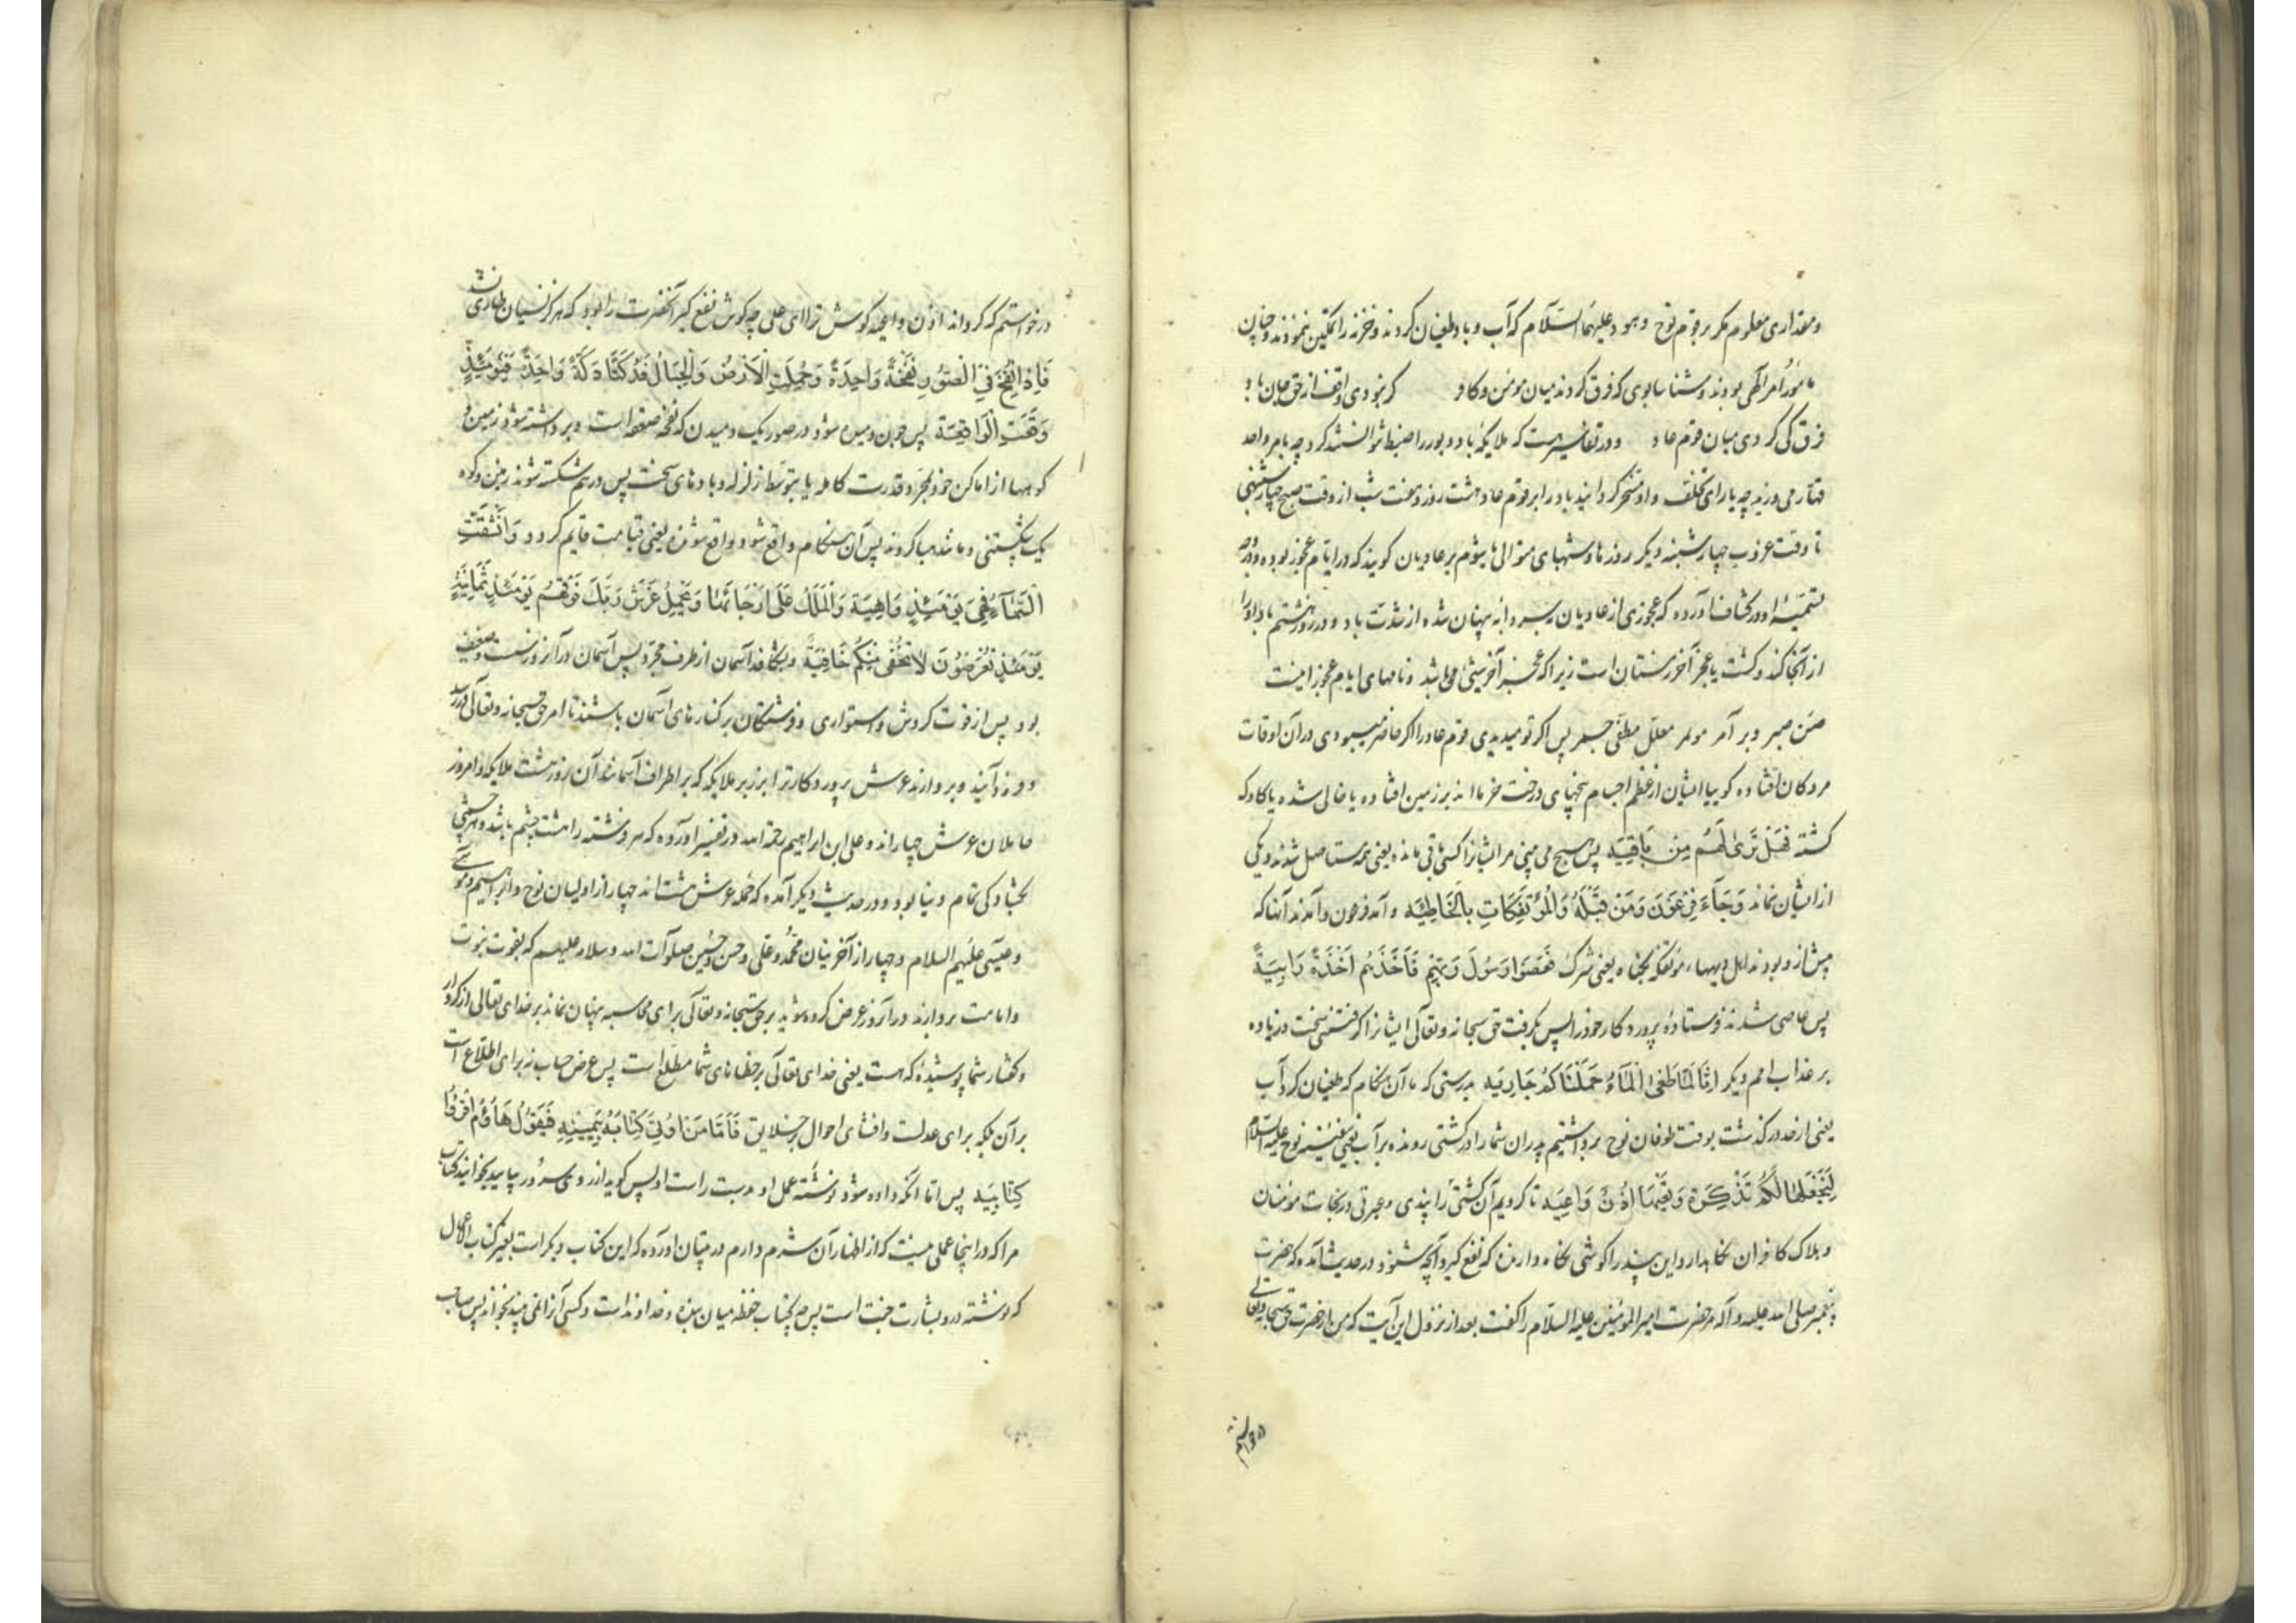 ومقداری معلوم مکر بر قوم نوح وهود علیهما السلام که آب وباد طغیان کردند وخزنه را تمکین ننمودند وچنان
مامور امر الهی بودند وشناسا بوی که فرق کردند میان مومن وکاو کر نبودی واقف از حق جان باد
فرق کی کردی میان قوم عاد ودر تفاسیر هست که ملایکه باد دبور را ضبط نتوانستند کرد چه بامر واحد
قهار می وزید چه یارای تخلف واو مسخر کردانید باد را بر قوم عاد هشت روز وهفت شب از وقت صبح چهارشنبهی
تا وقت غروب چهارشنبه دیکر روزها وشبهای متوالی یا شوم بر عادیان کویند که در ایام عجوز بوده ووجه
تسمیهٔ او در کشاف آورده که عجوزی از عادیان بسردابه پنهان شده از شدت باد ودر روز هشتم باد او را
از آنجا کند وکشت یا عجز آخر زمستان است زیرا که عجز آخر شیٔ می باشد ونامهای ایام عجوز اینست
صن صبر وبر آمر موتمر معلل مطفی جمر پس اکر تو میدیدی قوم عاد را اکر حاضر میبودی در آن اوقات
مردکان افتاده کوییا ایشان از عظم اجسام بیخهای درخت خرمااند بر زمین افتاده یا خالی شده یا کاوک
کشته فَهَلْ تَرَىٰ لَهُم مِّن بَاقِيَةٍ پس هیچ می بینی مر ایشانرا کسی باقی مانده یعنی همه مستاصل شدند ویکی
از ایشان نماند وَجَآءَ فِرْعَوْنَ وَمَنْ قَبْلَهُ وَالْمُؤْتَفِكَاتِ بِالْخَاطِئَه وآمد فرعون وآمدند آنها که
پیش از و بودند واهل دیههاء موتفکه بکناه یعنی شرک فَعَصَوْا رَسُولَ رَبِّهِم فَأَخَذَهُم أَخْذَةً رَابِيَةً
پس عاصی شدند فرستادهٔ پروردکار خود را پس بکرفت حق سبحانه وتعالی ایشانرا کرفتنی سخت وزیاده
بر عذاب امم دیکر اِنَّا لَمَّا طَغَى الْمَآءُ حَمَلْنَاكُم جَارِيَه بدرستی که ما آن هنکام که طغیان کرد آب
یعنی از حد در کذشت بوقت طوفان نوح برداشتیم پدران شما را در کشتی رونده بر آب یعنی سفینهٔ نوح علیه السلام
لِنَجْعَلَهَا لَكُمْ تَذْكِرَةً وَتَعِيَهَا اُذُنٌ وَاعِيَه تا کردیم آن کشتی را پندی وعبرتی در نجات مومنان
وهلاک کافران ونکاهدارد این پند را کوشی نکاه دارنده که نفع کیرد آنچه شنود ودر حدیث آمده که حضرت
پیغمبر صلی الله علیه وآله مر حضرت امیر المؤمنین علیه السلام را کفت بعد از نزول این آیت که من از حضرت حق سبحانه وتعالی
درخواستم
درخواستم که کرداند اذن واعیه کوش ترا ای علی چه کوش نفع کیر آنحضرت را بود که هرکز نسیان طاری نشد
فَاِذَا نُفِخَ فِي الصُّورِ نَفْخَةٌ وَاحِدَةٌ وَحُمِلَتِ الْاَرْضُ وَالْجِبَالُ فَدُكَّتَا دَكَّةً وَاحِدَةً فَيَوْمَئِذٍ
وَقَعَتِ الْوَاقِعَة پس چون دمیده شود در صور یک دمیدن که نفخه صعقه است وبرداشته شود زمین و
کوهها از اماکن خود بمجرد قدرت کامله یا بتوسط زلزله وبادهای سخت پس درهم شکسته شوند زمین وکوه
یک شکستنی ومانند هبا کردند پس آن هنکام واقع شود واقع شونده یعنی قیامت قایم کردد وَانْشَقَّتِ
السَّمَآءُ فَهِيَ يَوْمَئِذٍ وَاهِيَة وَالْمَلَكُ عَلَى اَرْجَآئِهَا وَيَحْمِلُ عَرْشَ رَبِّكَ فَوْقَهُمْ يَوْمَئِذٍ ثَمَانِيَةٌ
يَوْمَئِذٍ تُعْرَضُونَ لَا تَخْفَى مِنْكُم خَافِيَةٌ وبشکافد آسمان از طرف مجره پس آسمان در آنروز سست وضعیف
بود پس از قوت کردش واستواری وفرشتکان بر کنارهای آسمان باشند تا امر حق سبحانه وتعالی در رسد
وفرود آیند وبردارند عرش پروردکار ترا بر زبر ملایکه که بر اطراف آسمانند آن روز هشت ملایکه وامروز
حاملان عرش چهاراند وعلی ابن ابراهیم رحمة الله در تفسیر آورده که هر فرشته را هشت چشم باشد هر چشمی
بکشادکی تمام دنیا بود ودر حدیث دیکر آمده که حمله عرش هشت اند چهار از اولیان نوح وابراهیم وموسی
وعیسی علیهم السلام وچهار از آخرینان محمد وعلی وحسن وحسین صلوات الله وسلامه علیهم که بقوت نبوت
وامامت بردارند در آنروز عرض کرده شوید بر حق سبحانه وتعالی برای محاسبه پنهان نماند بر خدای تعالی از کردار
وکفتار شما پوشیدهٔ که هست یعنی خدای تعالی بر خطاهای شما مطلع است پس عرض حساب نه برای اطلاع است
بر آن بلکه برای عدلست وافشای احوال بر خلایق فَاَمَّا مَنْ اُوتِيَ كِتَابَهُ بِيَمِينِهِ فَيَقُولُ هَآؤُمُ اقْرَؤُا
كِتَابِيَه پس اما آنکه داده شود نوشتهٔ عمل او بدست راست او پس کوید از روی سرور بیایید بخوانید کتاب
مرا که در اینجا عملی نیست که از اظهار آن شرم دارم در تبیان آورده که این کتاب دیکر است بغیر کتاب اعمال
که نوشته درو بشارت جنت است پس چه کتاب حفظه میان بنده وخداوند است وکسی آنرا نمی بیند ونخواند پس صاحب